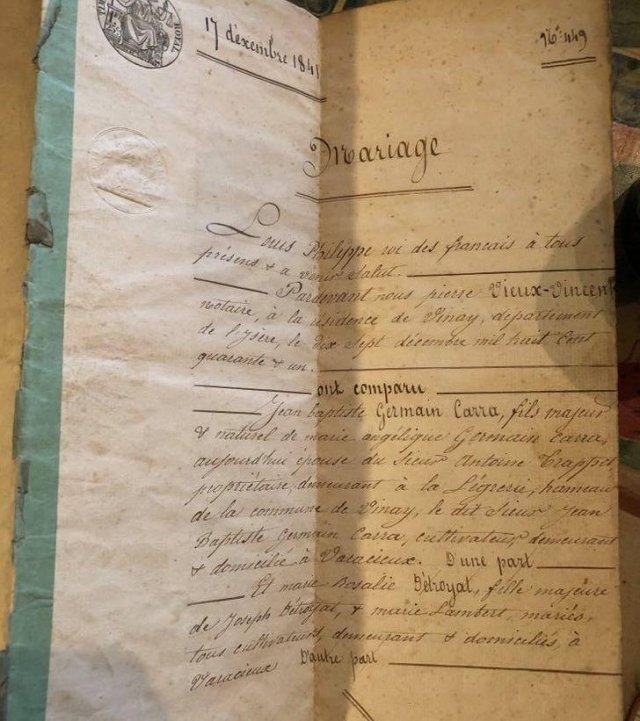 ROYAL
17 décembre 1841
No. 449
Mariage
Louis Philippe roi des francais à tous
présens & a venir Salut.
Pardevant nous pierre Vieux-Vincent
notaire, à la résidence de Vinay, département
de l'ysère, le dix Sept décembre mil huit Cent
quarante & un.
ont comparu
Jean baptiste Germain Carra, fils majeur
& naturel de marie angélique Germain Carra,
aujourd'hui épouse du Sieur Antoine Trappet
propriétaire, demeurant à la Légrerie, hameau
de la commune de Vinay, le dit Sieur Jean
Baptiste Germain Carra, cultivateur, demeurant
& domicilié à Varacieux. D'une part
Et marie Rosalie Détroyat, fille majeure
de Joseph Détroyat, & marie Lambert, mariés,
tous cultivateurs, demeurant & domiciliés à
Varacieux D'autre part